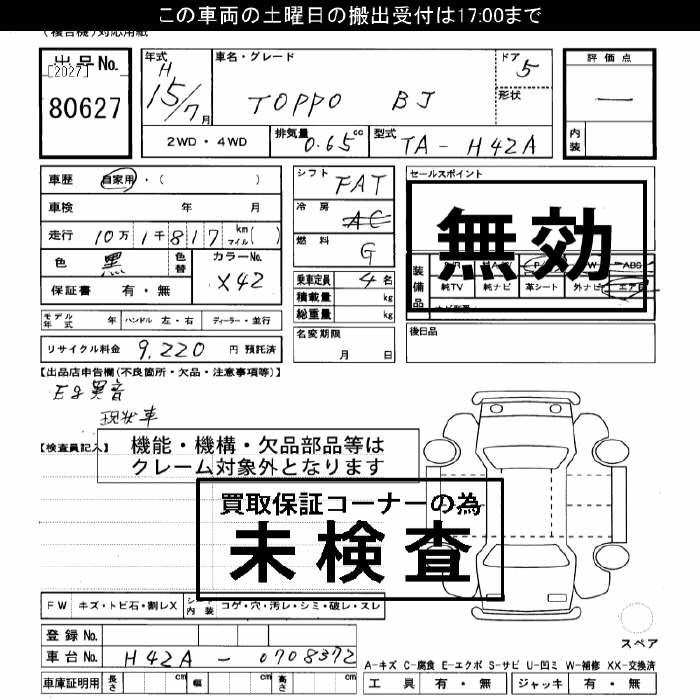 この車両の土曜日の搬出受付は17:00まで
(複合機)対応用紙
出品No.
[2027]
80627
年式 H 15/7 月
車名・グレード TOPPO BJ
ドア 5
形状
評価点
—
内装
2WD・4WD
排気量 0.65 cc
型式 TA- H42A
車歴 自家用・( )
車検 年 月
走行 10万1千817 km マイル( )
色 黒 色替
カラーNo. X42
保証書 有・無
シフト FAT
冷房 AC
燃料 G
乗車定員 4 名
積載量 kg
総重量 kg
セールスポイント
無効
装備品
ABS
純TV 純ナビ 革シート 外ナビ エアB
モデル年式 年 ハンドル 左・右 ディーラー・並行
名変期限
月 日
後日品
リサイクル料金 9,220 円 預託済
【出品店申告欄(不良箇所・欠品・注意事項等)】
Eg異音
現状車
【検査員記入】
機能・機構・欠品部品等は
クレーム対象外となります
買取保証コーナーの為
未検査
FW キズ・トビ石・割レX シート内装 コゲ・穴・汚レ・シミ・破レ・スレ
登録No.
車台No. H42A - 0708372
スペア
A-キズ C-腐食 E-エクボ S-サビ U-凹ミ W-補修 XX-交換済
車庫証明用 長さ cm 幅 cm 高さ cm
工具 有・無 ジャッキ 有・無